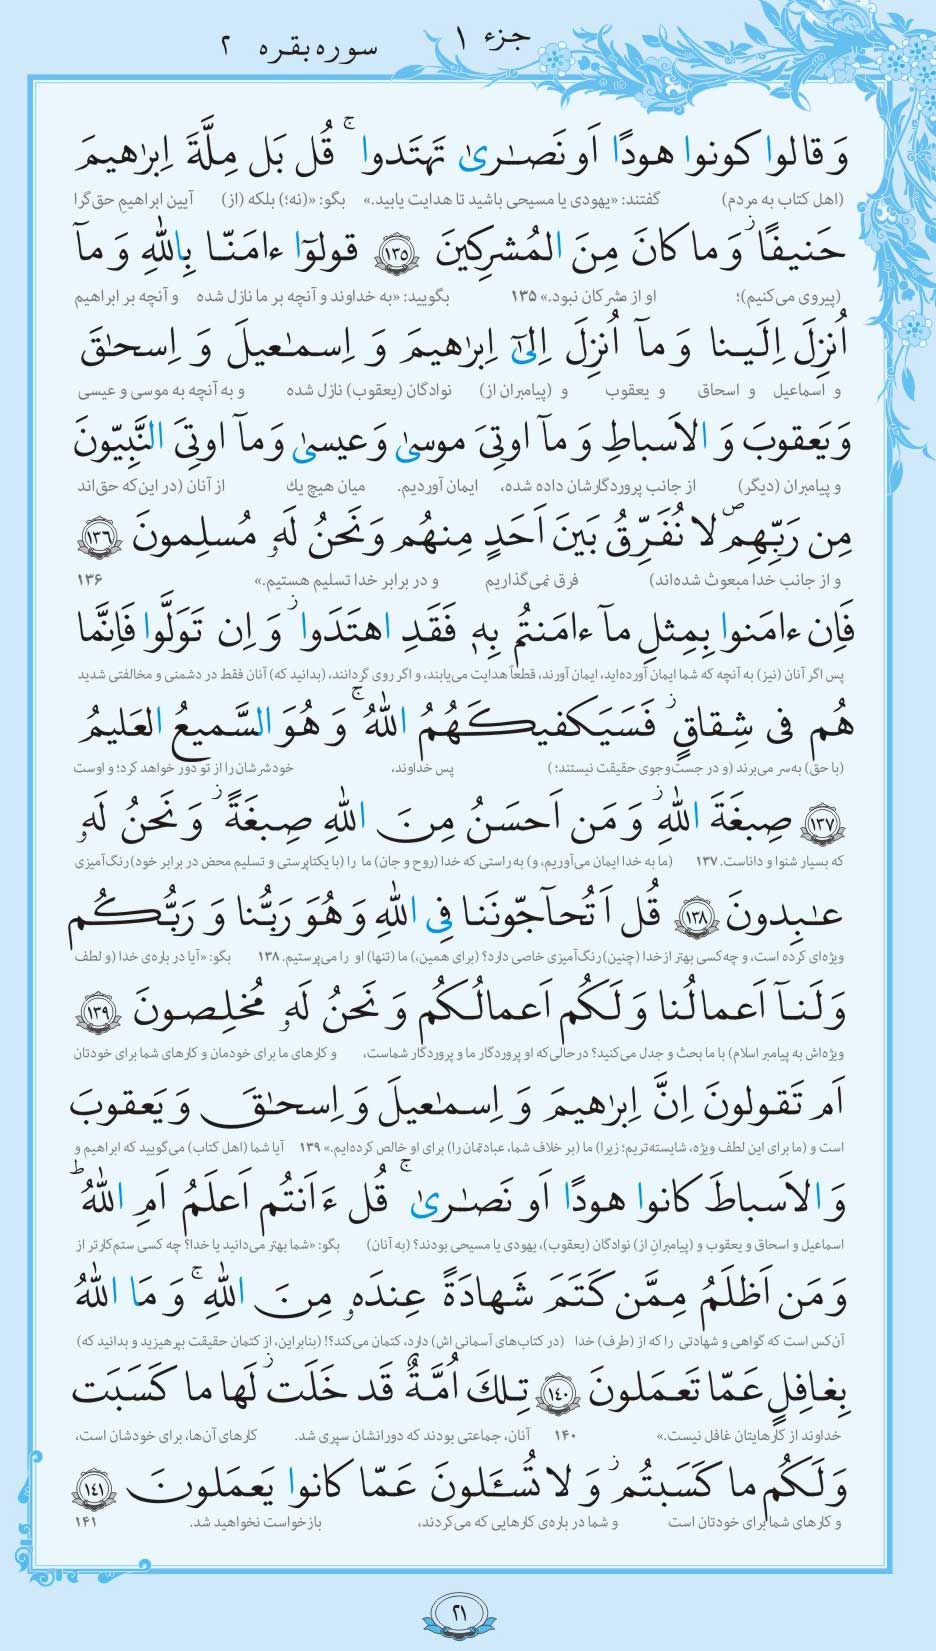 جزء ۱
سوره بقره ۲
وَ قالوا كونوا هودًا اَو نَصـٰرىٰ تَهتَدوا ۚ قُل بَل مِلَّةَ اِبرٰهيمَ
(اهل کتاب به مردم) گفتند: «یهودی یا مسیحی باشید تا هدایت یابید.» بگو: «(نه؛) بلکه (از) آیین ابراهیمِ حق‌گرا
حَنيفًا ز وَ ما كانَ مِنَ المُشرِكينَ ﴿١٣٥﴾ قولوٓا ءامَنّـا بِاللّٰهِ وَ مآ
(پیروی می‌کنیم)؛ او از مشرکان نبود.» ۱۳۵ بگویید: «به خداوند و آنچه بر ما نازل شده و آنچه بر ابراهیم
اُنزِلَ اِلَيـنا وَ مآ اُنزِلَ اِلىٰٓ اِبرٰهيمَ وَ اِسمـٰعيلَ وَ اِسحـٰقَ
و اسماعیل و اسحاق و یعقوب و (پیامبران از) نوادگان (یعقوب) نازل شده و به آنچه به موسی و عیسی
وَ يَعقوبَ وَ الاَسباطِ وَ مآ اوتِىَ موسىٰ وَ عيسىٰ وَ مآ اوتِىَ النَّبِيّونَ
و پیامبران (دیگر) از جانب پروردگارشان داده شده، ایمان آوردیم. میان هیچ یك از آنان (در این‌که حق‌اند
مِن رَبِّهِم ص لا نُفَرِّقُ بَينَ اَحَدٍ مِنهُم وَ نَحنُ لَهٗ مُسلِمونَ ﴿١٣٦﴾
و از جانب خدا مبعوث شده‌اند) فرق نمی‌گذاریم و در برابر خدا تسلیم هستیم.» ۱۳۶
فَاِن ءامَنوا بِمِثلِ مآ ءامَنتُم بِهٖ فَقَدِ اهتَدَوا ز وَ اِن تَوَلَّوا فَاِنَّما
پس اگر آنان (نیز) به آنچه که شما ایمان آورده‌اید، ایمان آورند، قطعاً هدایت می‌یابند، و اگر روی گردانند، (بدانید که) آنان فقط در دشمنی و مخالفتی شدید
هُم فى شِقاقٍ ز فَسَيَكفيكَهُمُ اللّٰهُ ۚ وَ هُوَ السَّميعُ العَليمُ
(با حق) به‌سر می‌برند (و در جست‌وجوی حقیقت نیستند؛) پس خداوند، خودشرشان را از تو دور خواهد کرد؛ و اوست
﴿١٣٧﴾ صِبغَةَ اللّٰهِ ز وَ مَن اَحسَنُ مِنَ اللّٰهِ صِبغَةً ز وَ نَحنُ لَهٗ
که بسیار شنوا و داناست. ۱۳۷ (ما به خدا ایمان می‌آوریم، و) به راستی که خدا (روح و جان) ما را (با یکتاپرستی و تسلیم محض در برابر خود) رنگ‌آمیزی
عـٰبِدونَ ﴿١٣٨﴾ قُل اَتُحآجّونَنا فِى اللّٰهِ وَ هُوَ رَبُّنا وَ رَبُّكُم
ویژه‌ای کرده است، و چه‌کسی بهتر از خدا (چنین) رنگ‌آمیزی خاصی دارد؟ (برای همین،) ما (تنها) او را می‌پرستیم. ۱۳۸ بگو: «آیا درباره‌ی خدا (و لطف
وَ لَنـآ اَعمالُنا وَ لَكُم اَعمالُكُم وَ نَحنُ لَهٗ مُخلِصونَ ﴿١٣٩﴾
ویژه‌اش به پیامبر اسلام) با ما بحث و جدل می‌کنید؟ درحالی‌که او پروردگار ما و پروردگار شماست، و کارهای ما برای خودمان و کارهای شما برای خودتان
اَم تَقولونَ اِنَّ اِبرٰهيمَ وَ اِسمـٰعيلَ وَ اِسحـٰقَ وَ يَعقوبَ
است و (ما برای این لطف ویژه، شایسته‌تریم؛ زیرا) ما (بر خلاف شما، عبادتمان را) برای او خالص کرده‌ایم.» ۱۳۹ آیا شما (اهل کتاب) می‌گویید که ابراهیم و
وَ الاَسباطَ كانوا هودًا اَو نَصـٰرىٰ ۚ قُل ءَاَنتُم اَعلَمُ اَمِ اللّٰهُ ط
اسماعیل و اسحاق و یعقوب و (پیامبرانِ از) نوادگان (یعقوب)، یهودی یا مسیحی بودند؟ (به آنان) بگو: «شما بهتر می‌دانید یا خدا؟ چه کسی ستم‌کارتر از
وَ مَن اَظلَمُ مِمَّن كَتَمَ شَهادَةً عِندَهٗ مِنَ اللّٰهِ ۚ وَ مَا اللّٰهُ
آن‌کس است که گواهی و شهادتی را که از (طرف) خدا (در کتاب‌های آسمانی اش) دارد، کتمان می‌کند؟! (بنابراین، از کتمان حقیقت بپرهیزید و بدانید که)
بِغافِلٍ عَمّا تَعمَلونَ ﴿١٤٠﴾ تِلكَ اُمَّةٌ قَد خَلَت ز لَها ما كَسَبَت
خداوند از کارهایتان غافل نیست.» ۱۴۰ آنان، جماعتی بودند که دورانشان سپری شد. کارهای آن‌ها، برای خودشان است،
وَ لَكُم ما كَسَبتُم ز وَ لا تُسـَٔلونَ عَمّا كانوا يَعمَلونَ ﴿١٤١﴾
و کارهای شما برای خودتان است و شما درباره‌ی کارهایی که می‌کردند، بازخواست نخواهید شد. ۱۴۱
۲۱